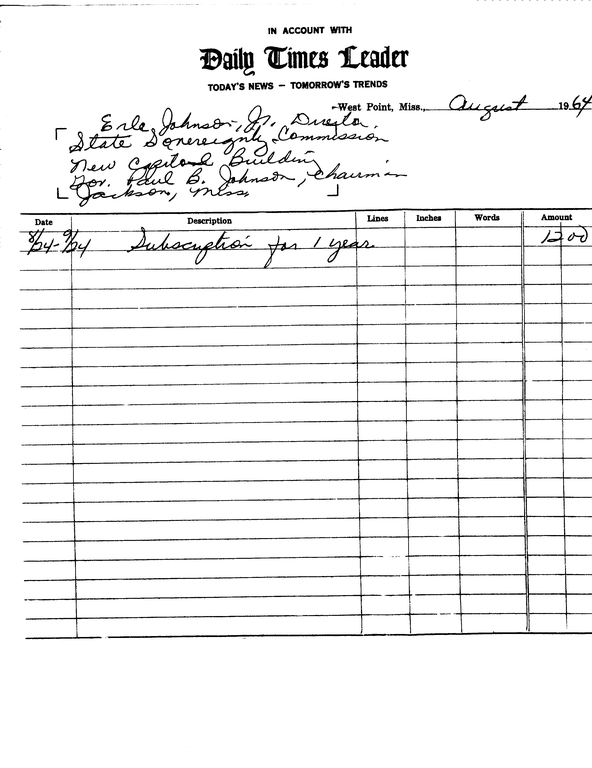 IN ACCOUNT WITH
Daily Times Leader
TODAY'S NEWS — TOMORROW'S TRENDS
West Point, Miss., August 1964
Erle Johnson, Jr. Director
State Sovereignty Commission
New Capitol Building
Gov. Paul B. Johnson, Chairman
Jackson, Miss.
Date Description Lines Inches Words Amount
8/24-9/24 Subscription for 1 year 12 00